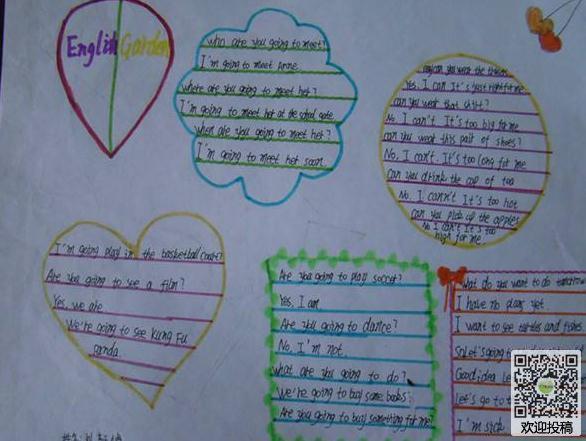 English Garden
who are you going to meet?
I'm going to meet Anne.
where are you going to meet her?
I'm going to meet her at the school gate.
when are you going to meet her?
I'm going to meet her soon.
can you wear the
Yes, I can It's just right for me
can you wear that shirt?
No I can't. It's too big for me
can you wear this pair of shoes?
No, I can't. It's too long for me
can you drink the cup of tea
No. I cann't It's too hot
can you pick up the apples
No I can't It's too
high for me
I'm going play in the basketball court?
Are you going to see a film?
Yes, we are
We're going to see Kung Fu
panda.
Are you going to play soccer?
Yes, I am
Are you going to dance?
No, I'm not.
what are you going to do?
We're going to buy some books.
Are you going to buy something for me?
What do you want to do tomorrow
I have no plans yet.
I want to see turtles and fishes.
So Let's going to
Good idea Le
Let's go to t
I'm sick
欢迎投稿